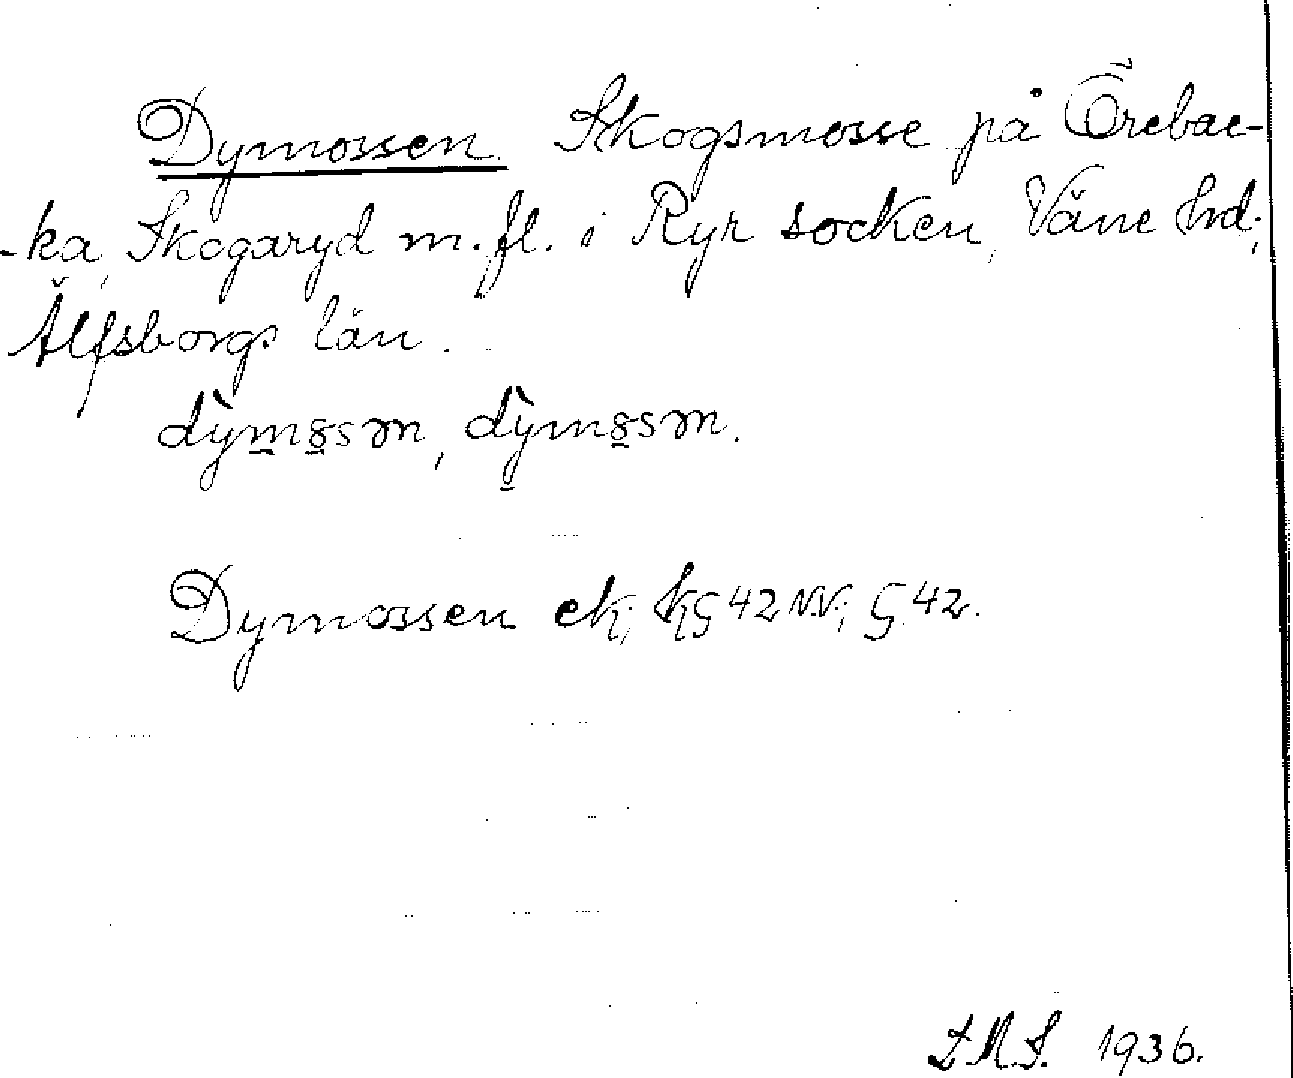 Dymossen. Skogsmosse på Örebac-
-ka, Skogaryd m.fl. i Ryr socken, Väne hd;
Älfsborgs län.
dy̍m̲ɞ̲sən, dy̍mɞ̲sən.
Dymossen ek; kG 42 NV; G 42.
1936.